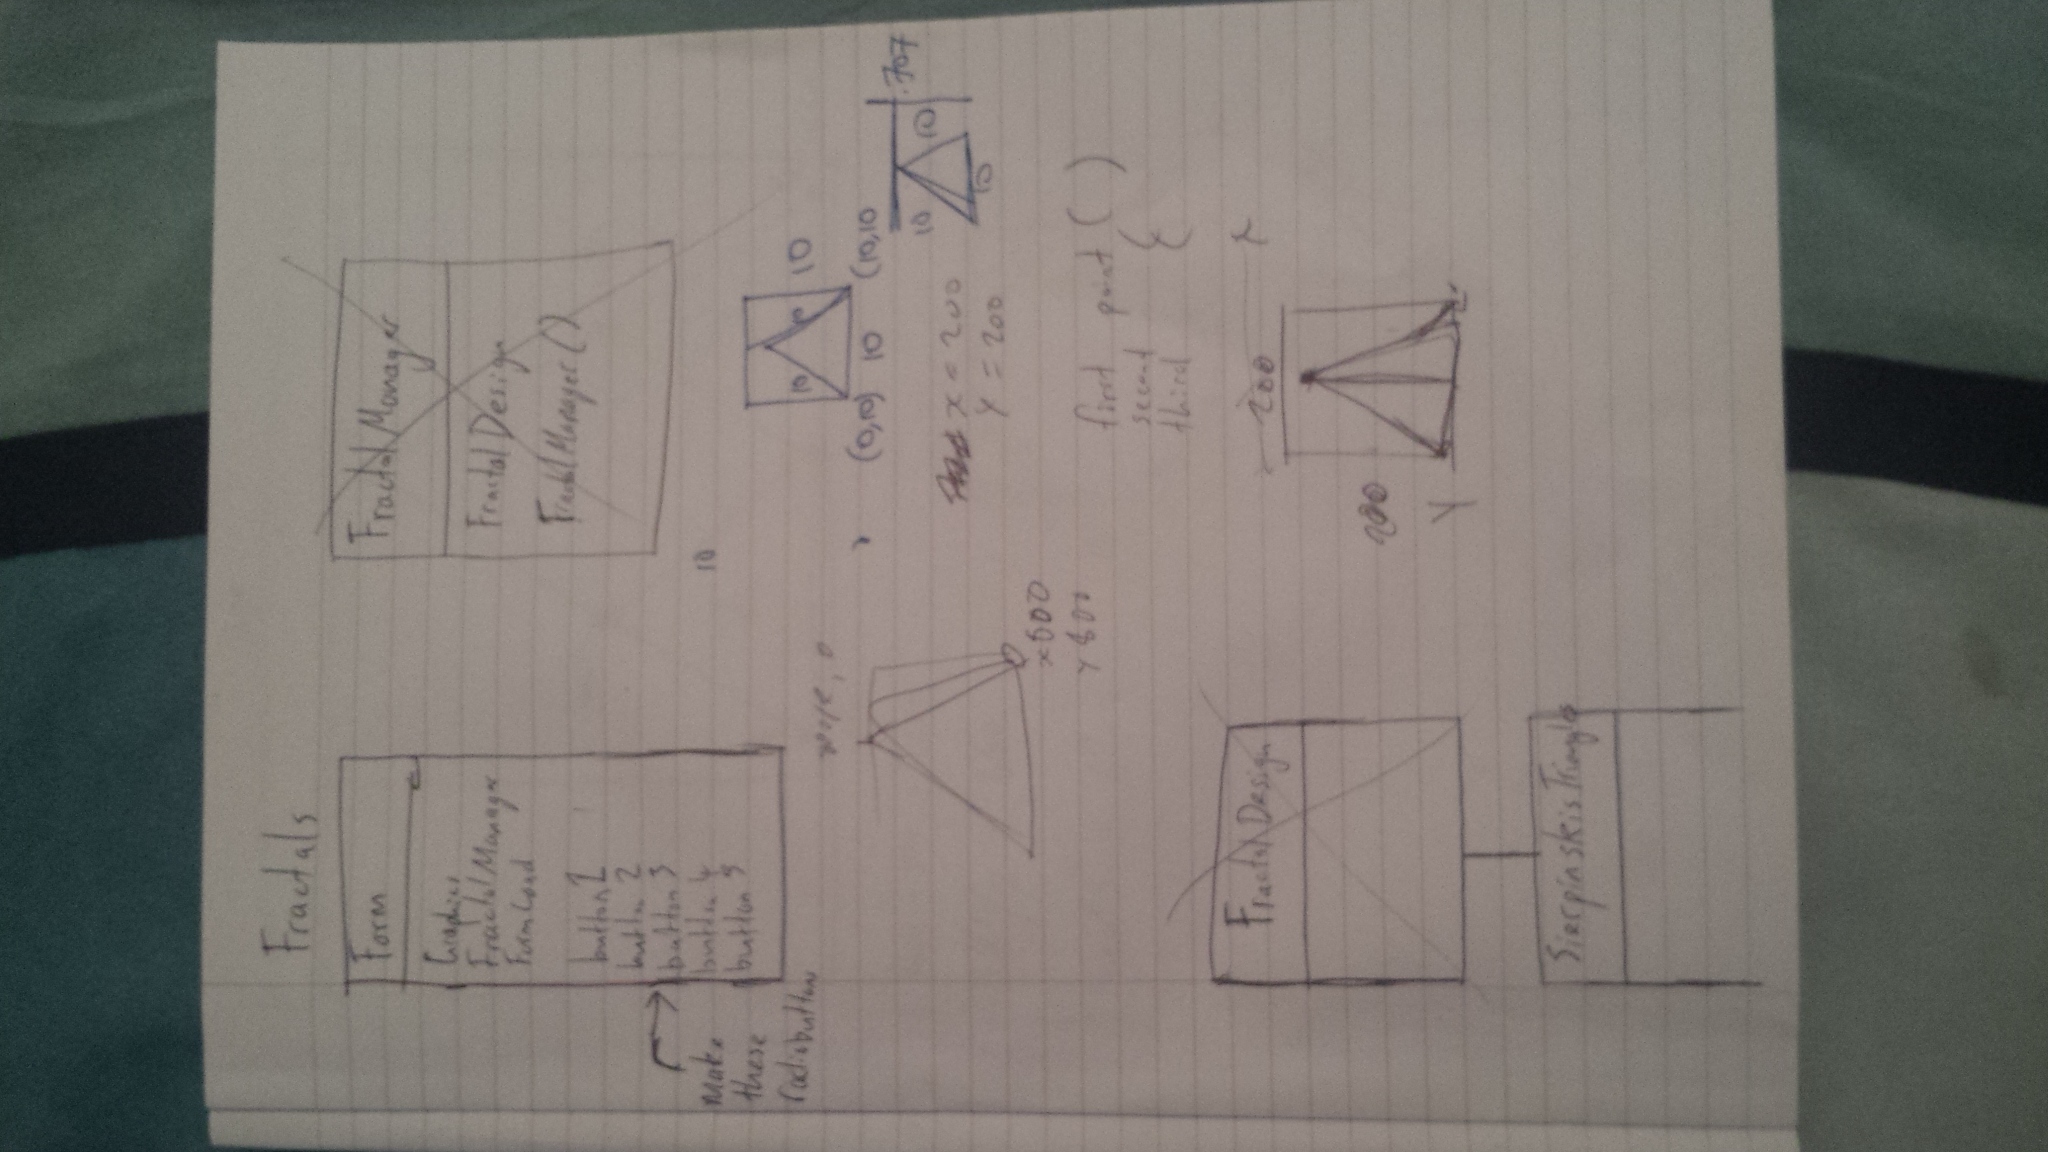 Fractals
Form
Graphics
Fractal Manager
Form Load
button 1
button 2
button 3
button 4
button 5
make
these
radiobutton
Fractal Manager
Fractal Design
Fractal Manager ()
10
10
10
(0,10) 10 (10,10
.707
10
10
10
x = 200
Y = 200
Y 800
first point ( )
second (
third (
Fractal Design
200
x
200
Y
Sierpinskis Triangle